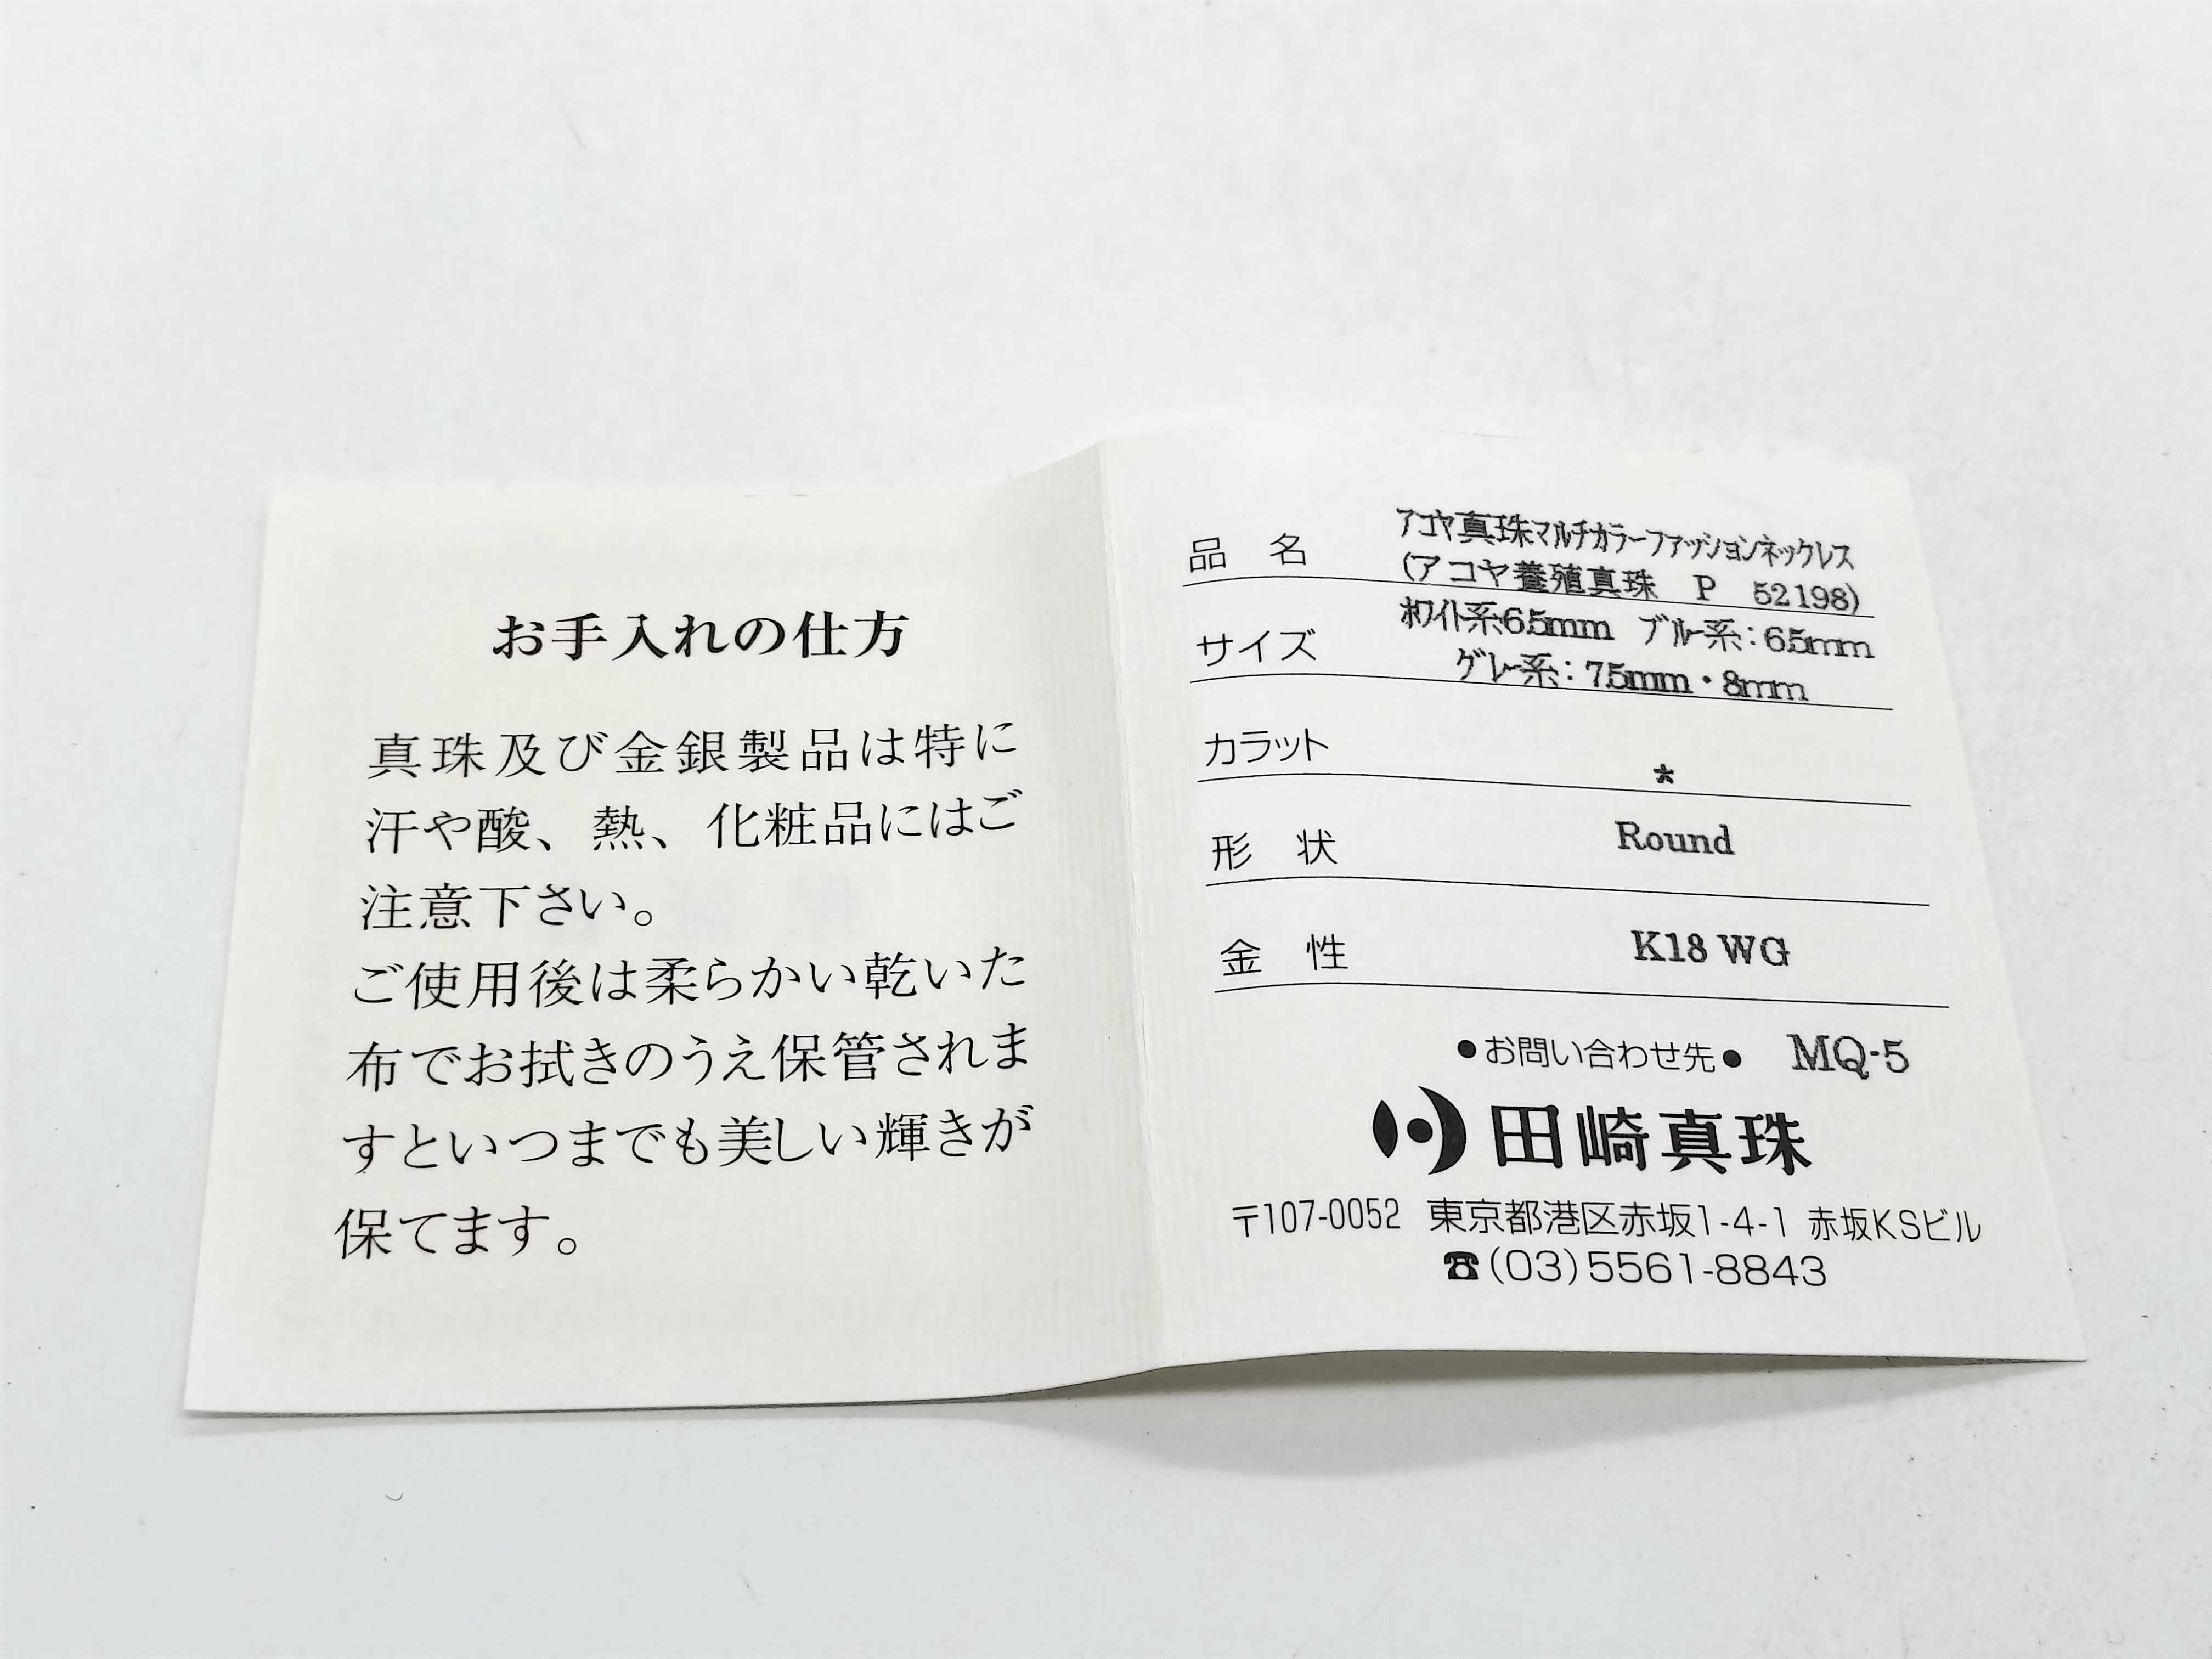 お手入れの仕方
真珠及び金銀製品は特に
汗や酸、熱、化粧品にはご
注意下さい。
ご使用後は柔らかい乾いた
布でお拭きのうえ保管されま
すといつまでも美しい輝きが
保てます。
品 名 アコヤ真珠マルチカラーファッションネックレス
(アコヤ養殖真珠 P 52198)
サイズ ホワイト系:6.5mm ブルー系:6.5mm
グレー系:7.5mm・8mm
カラット *
形 状 Round
金 性 K18 WG
●お問い合わせ先● MQ-5
田崎真珠
〒107-0052 東京都港区赤坂1-4-1 赤坂KSビル
☎(03)5561-8843